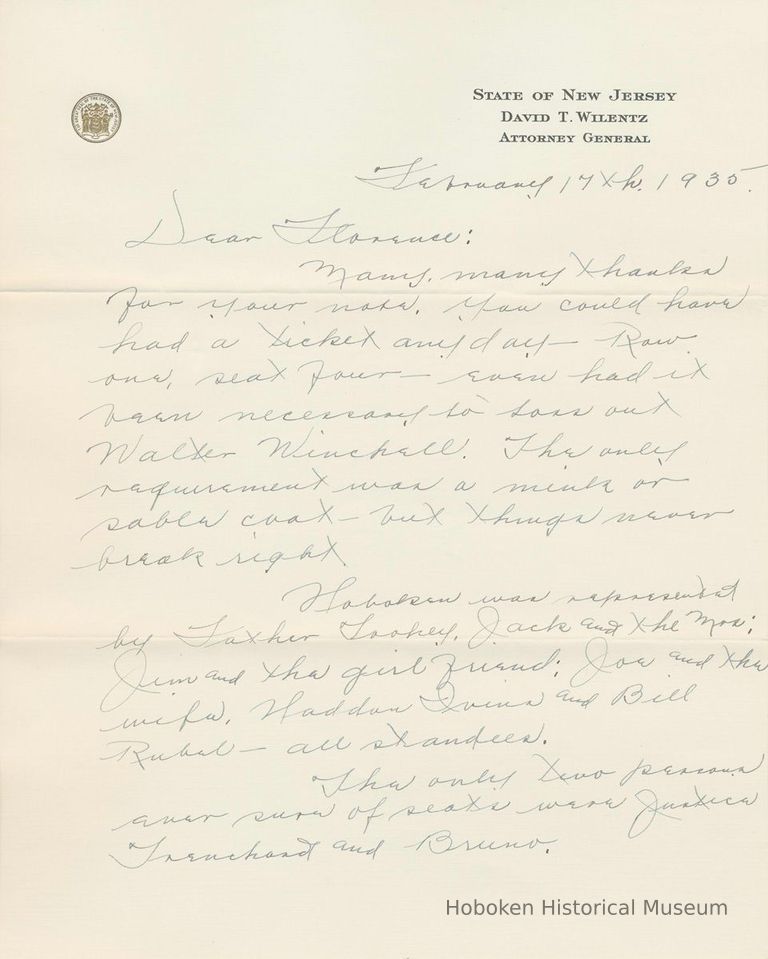 State of New Jersey
David T. Wilentz
Attorney General
February 17th. 1935.
Dear Florence:
Many, many thanks
for your note. You could have
had a ticket any day — Row
one, seat four — even had it
been necessary to toss out
Walter Winchell. The only
requirement was a mink or
sable coat — but things never
break right.
Hoboken was represented
by Father Tookey, Jack and the Mrs;
Jim and the girl friend; Joe and the
wife, Haddon Ivins and Bill
Rubel — all standees.
The only two persons
ever sure of seats were Justice
Trenchard and Bruno.
Hoboken Historical Museum